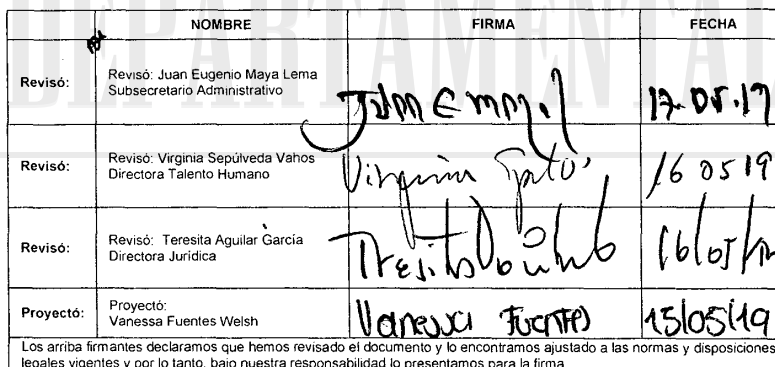 DEPARTAMENTAL
NOMBRE FIRMA FECHA
Revisó: Revisó: Juan Eugenio Maya Lema
Subsecretario Administrativo
17.05.19
Revisó: Revisó: Virginia Sepúlveda Vahos
Directora Talento Humano
Virginia 16 05 19
Revisó: Revisó: Teresita Aguilar García
Directora Jurídica
Teresita 16/05/19
Proyectó: Proyectó:
Vanessa Fuentes Welsh
Vanessa Fuentes 15/05/19
Los arriba firmantes declaramos que hemos revisado el documento y lo encontramos ajustado a las normas y disposiciones
legales vigentes y por lo tanto, bajo nuestra responsabilidad lo presentamos para la firma